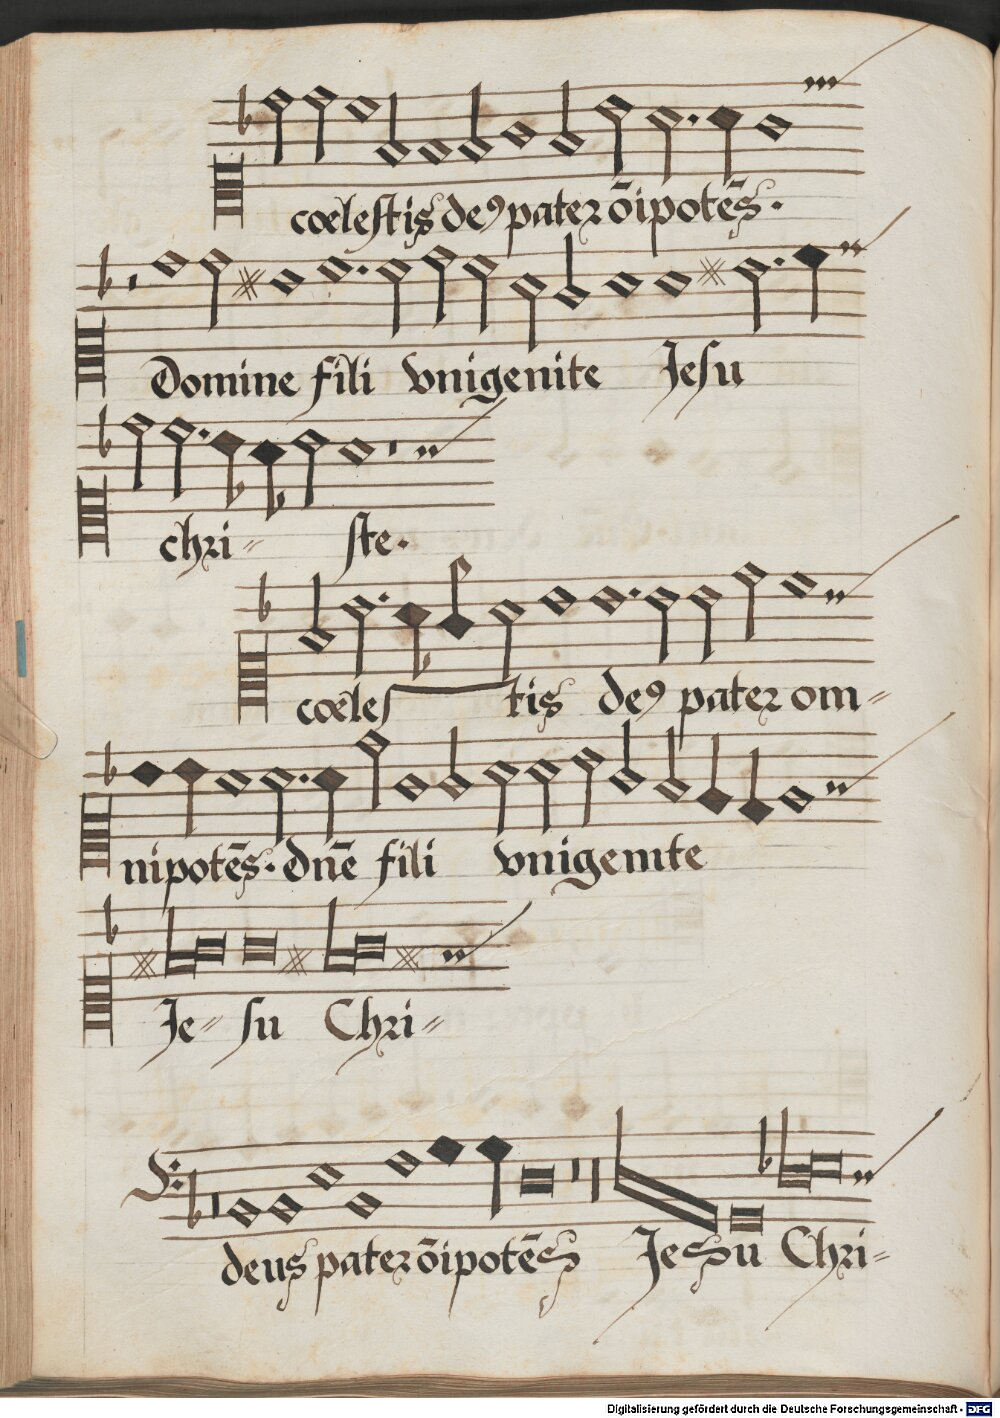 cœlestis deꝰ pater õipotēs.
Domine fili vnigenite Jesu
chri= ste.
cœles tis deꝰ pater om=
nipotēs. dnē fili vnigenite
Je= su Chri=
deus pater õipotēs Jesu Chri=
Digitalisierung gefördert durch die Deutsche Forschungsgemeinschaft - DFG